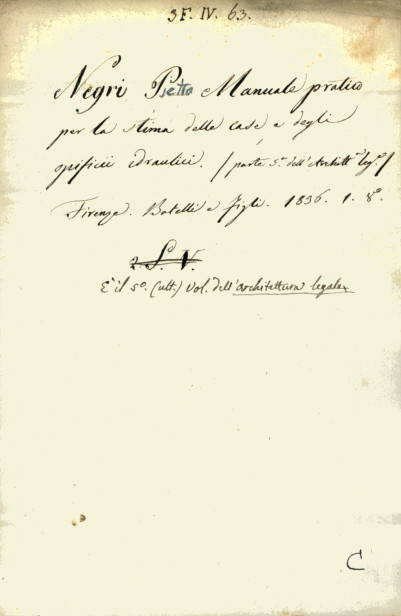 3F. IV. 63.
Negri Pietto Manuale pratico
per la stima delle case e degli
opificii idraulici. / parte 5.ª dell'Archittª. leg.ᵉ /
Firenze. Batelli e figli. 1836. 1. 8º.
2. S. V.
E' il 5º. (ult.) vol. dell'architettura legale
C